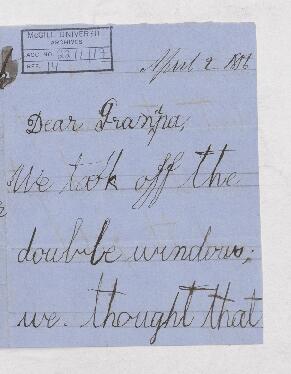 McGILL UNIVERSITY
ARCHIVES
ACC. NO.
REF.
April 2
Dear Granpa,
We took off the
double windows;
we thought that